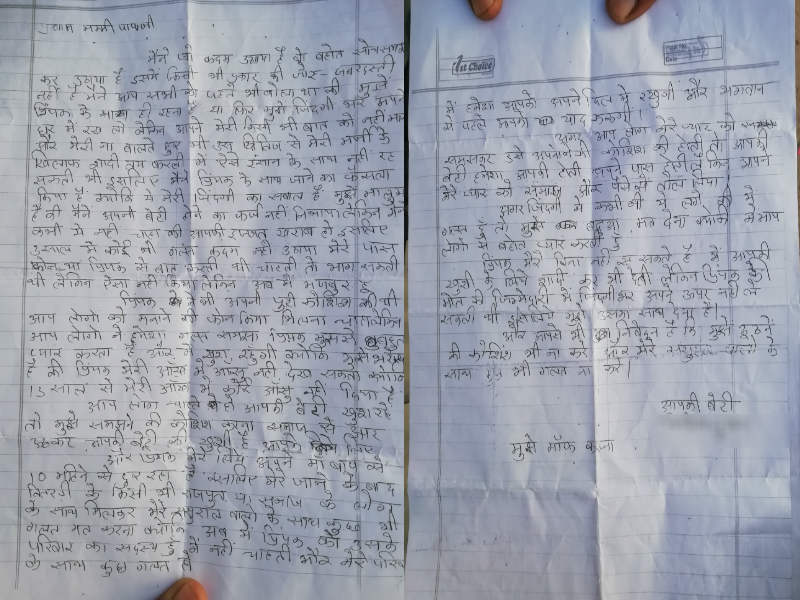 प्रणाम मम्मी पापाजी
मैंने जो कदम उठाया है वो बहोत सोच समझ
कर उठाया है इसमें किसी भी प्रकार की जोर जबरदस्ती
नहीं है मैंने आप सभी को पहले भी बोला था की मुझे
दिपक के साथ ही रहना है या फिर मुझे जिंदगी भर अपने
घर में रख लो लेकिन आपने मेरी किसी भी बात को नहीं माना
और मेरी ना बालते हुए भी मेरी मर्जी के
खिलाफ शादी तय करली में ऐसे इंसान के साथ नहीं रह
सकती थी इसलिए मैंने दिपक के साथ जाने का फैसला
किया है क्योंकि ये मेरी जिंदगी का सवाल है मुझे मालुम
है की मैंने आपकी बेटी होने का फर्ज नहीं निभाया लेकिन मैंने
कभी ये नहीं चाहा की आपकी इज्जत खराब हो इसलिए
साल में कोई भी गलत कदम नहीं उठाया मेरे पास
फोन था दिपक से बात करती थी चाहती तो भाग सकती
थी लेकिन ऐसा नहीं किया लेकिन अब में मजबूर हूँ
दिपक ने भी अपनी पूरी कोशिश की थी
आप लोगों को मनाने की फोन किया मिलना चाहा लेकिन
आप लोगों ने हमेशा गलत समझा दिपक मुझसे बहुत
प्यार करता है और में खुश रहूंगी क्योंकि मुझे भरोसा
है की दिपक मेरी आंख में आंसू नहीं देख सकता क्योंकि
साल से मेरी आंख में कोई आंसू नहीं दिया है
आप लोग चाहते हो आपकी बेटी खुश रहे
तो मुझे समझने की कोशिश करना समाज से और
आपकी बेटी की खुशी है आपके लिए
और दिपक मेरे लिए अपने माँ बाप से
10 महिने से दूर रहा है इसलिए मेरे जाने के बाद
किसी भी राजपूत या समाज के लोगो
के साथ मिलकर मेरे ससुराल वालों के साथ कुछ भी
गलत मत करना क्योंकि अब में दिपक की उसके
परिवार का सदस्य हूँ में नहीं चाहती और मेरे परिवार
के साथ कुछ गलत हो
1st Choice
में हमेशा आपको अपने दिल में रखुगी और भगवान
से पहले आपको याद करूंगी।
अगर आप लोग मेरे प्यार को
समझकर उसे अपनाने की कोशिश की होती तो आपकी
बेटी हमेशा आपकी होती, आपके पास होती लेकिन आपने
मेरे प्यार को ठुकराया और पैसों को तोल दिया।
अगर जिंदगी में कभी भी ये लगे की में
गलत हूँ तो मुझे बद्दुआ मत देना क्योंकि में आप
लोगो से बहोत प्यार करती हूँ
दिपक मेरे बिना नहीं रह सकते है में आपकी
खुशी के लिये शादी कर भी लेती लेकिन दिपक की
मौत की जिम्मेदारी में जिंदगीभर अपने उपर नहीं ले
सकती थी इसलिये मुझे उसका साथ देना है।
और आपसे भी निवेदन है कि मुझे ढूंढने
की कोशिश भी ना करे और मेरे ससुराल वालो के
साथ कुछ भी गलत ना करे।
आपकी बेटी
मुझे माफ करना